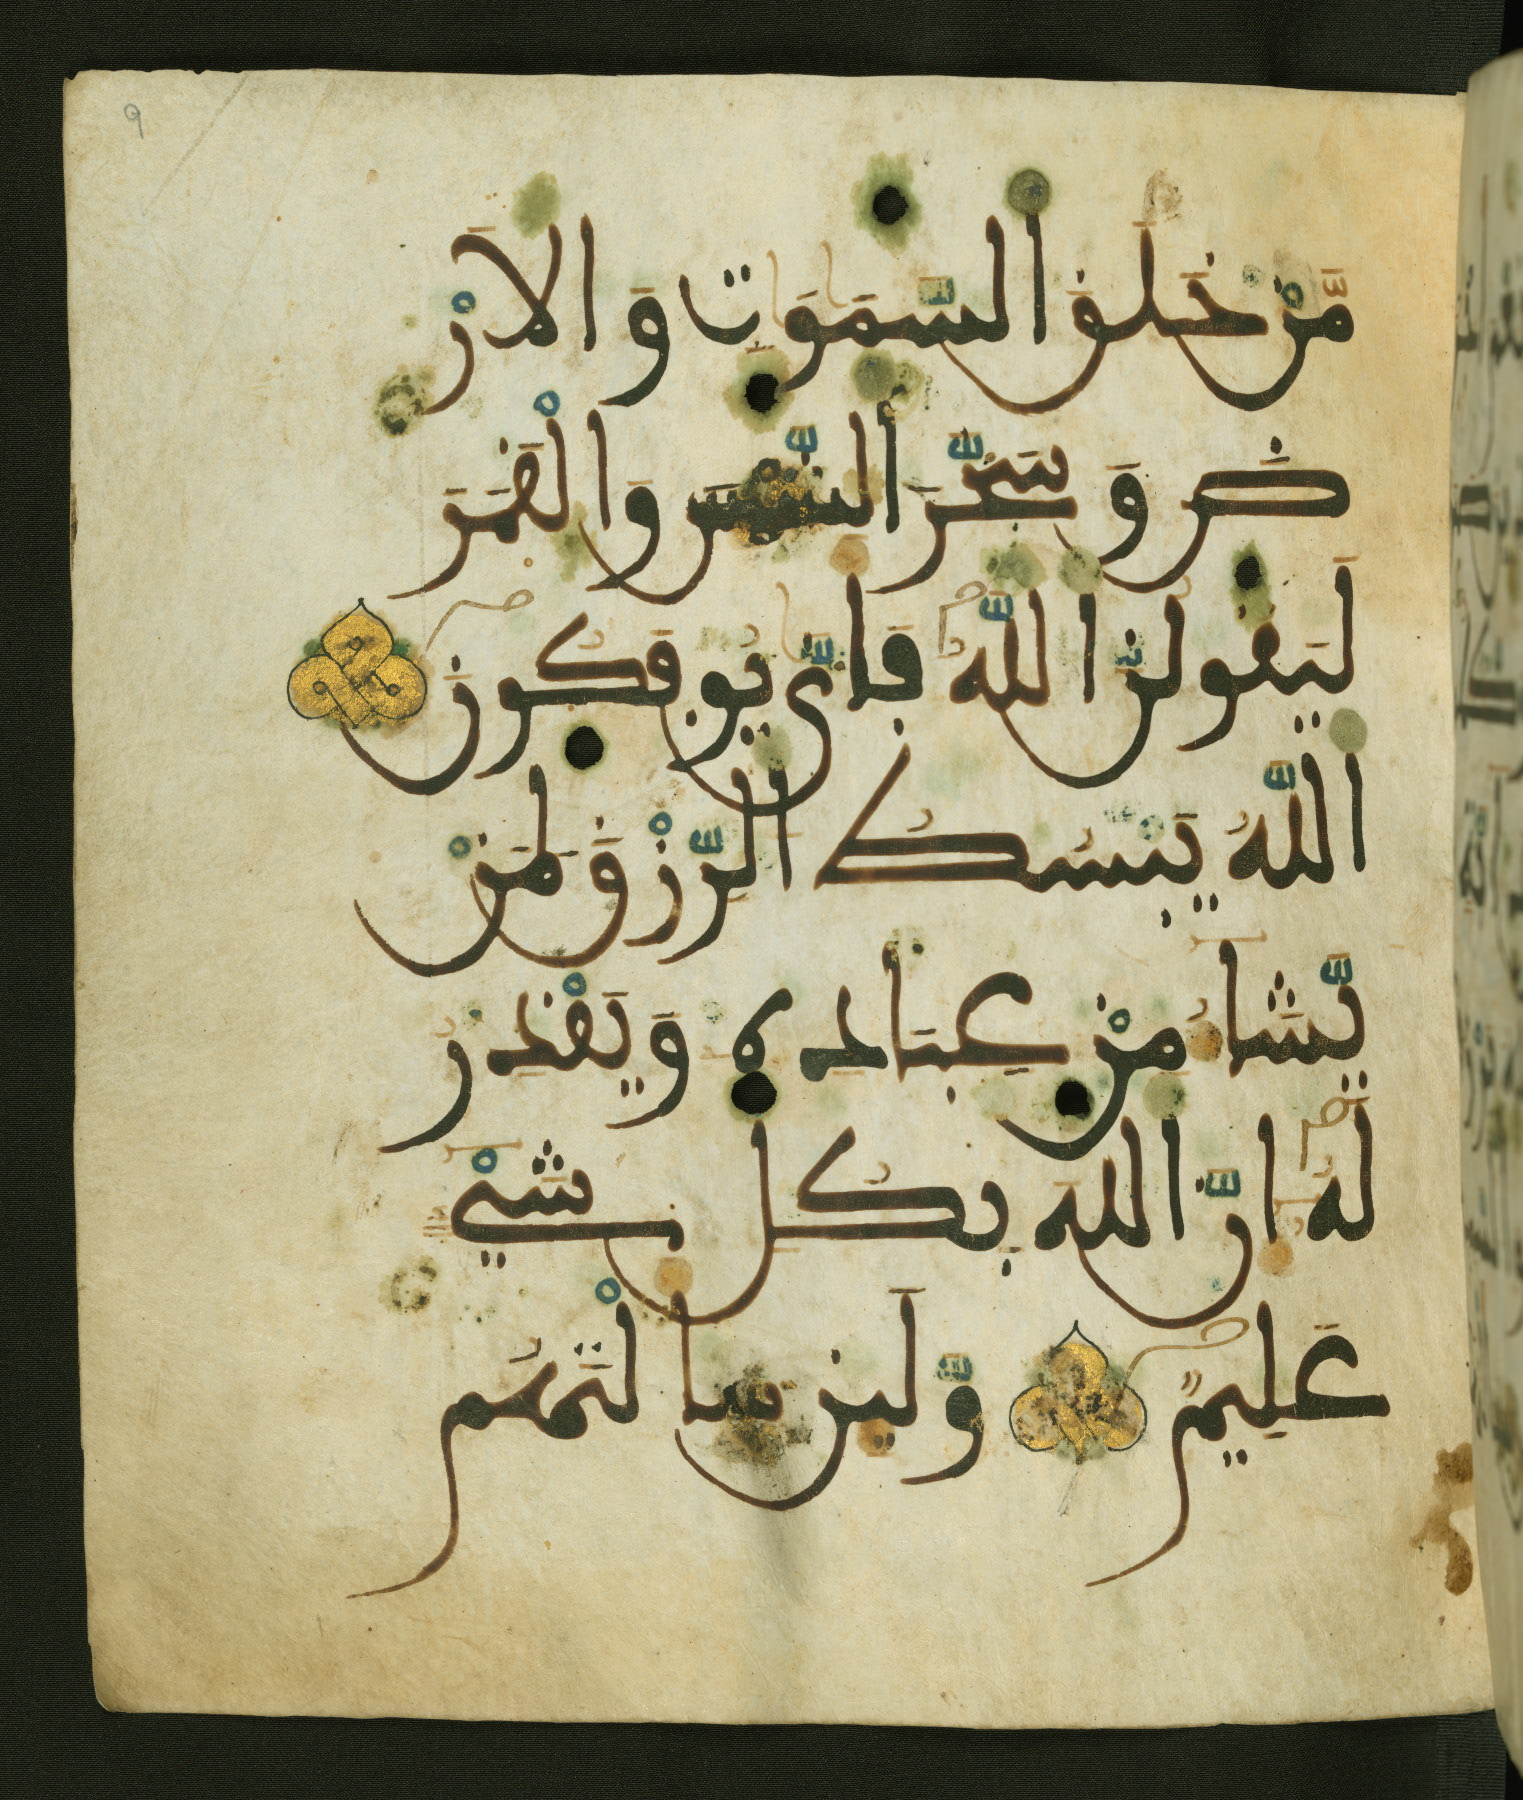 ٩
مَّنْ خَلَقَ السَّمَٰوَٰتِ وَالَارْ
ضَ وَسَخَّرَ الشَّمْسَ وَالْقَمَرَ
لَيَقُولُنَّ اللَّهُ فَأَنَّىٰ يُوفَكُونَ
اللَّهُ يَبْسُطُ الرِّزْقَ لِمَنْ
يَّشَآءُ مِنْ عِبَادِهِ وَيَقْدِرُ
لَهُ إِنَّ اللَّهَ بِكُلِّ شَيْءٍ
عَلِيمٌ وَّلَئِن سَأَلْتَهُم